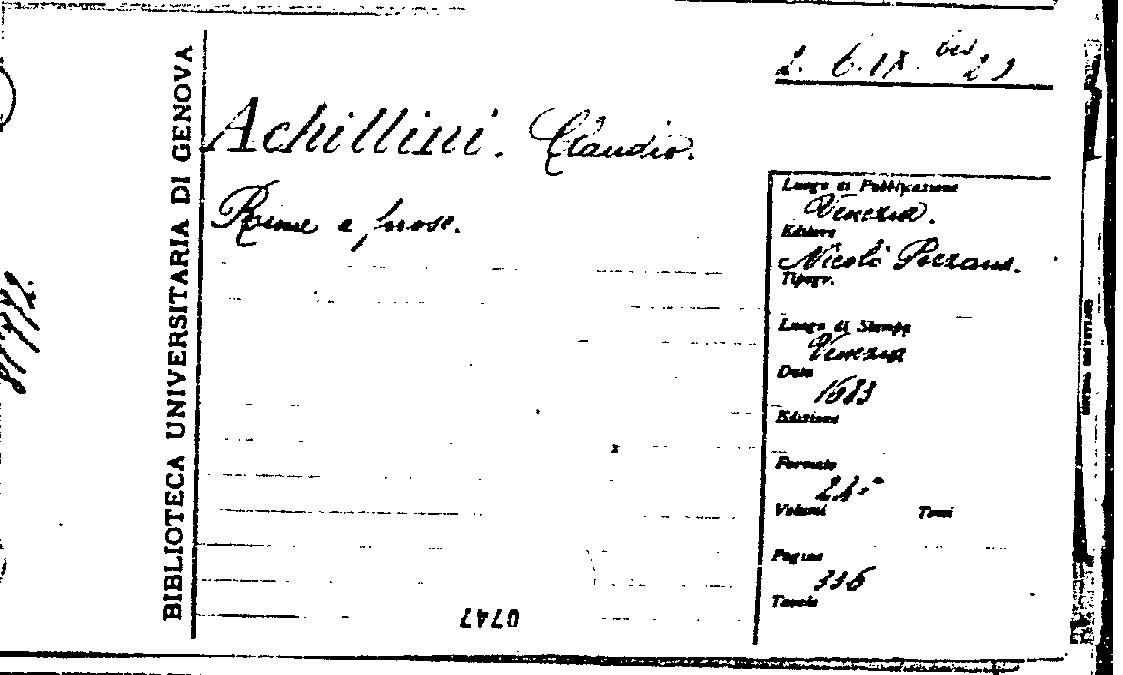 BIBLIOTECA UNIVERSITARIA DI GENOVA
2. 6. IX. bis 29
Achillini. Claudio.
Rime e prose.
Luogo di Pubblicazione
Venezia.
Editore
Nicolò Pezzana.
Tipogr.
Luogo di Stampa
Venezia
Data
1683
Edizione
Formato
24°
Volumi Tomi
Pagine
336
Tavole
0747